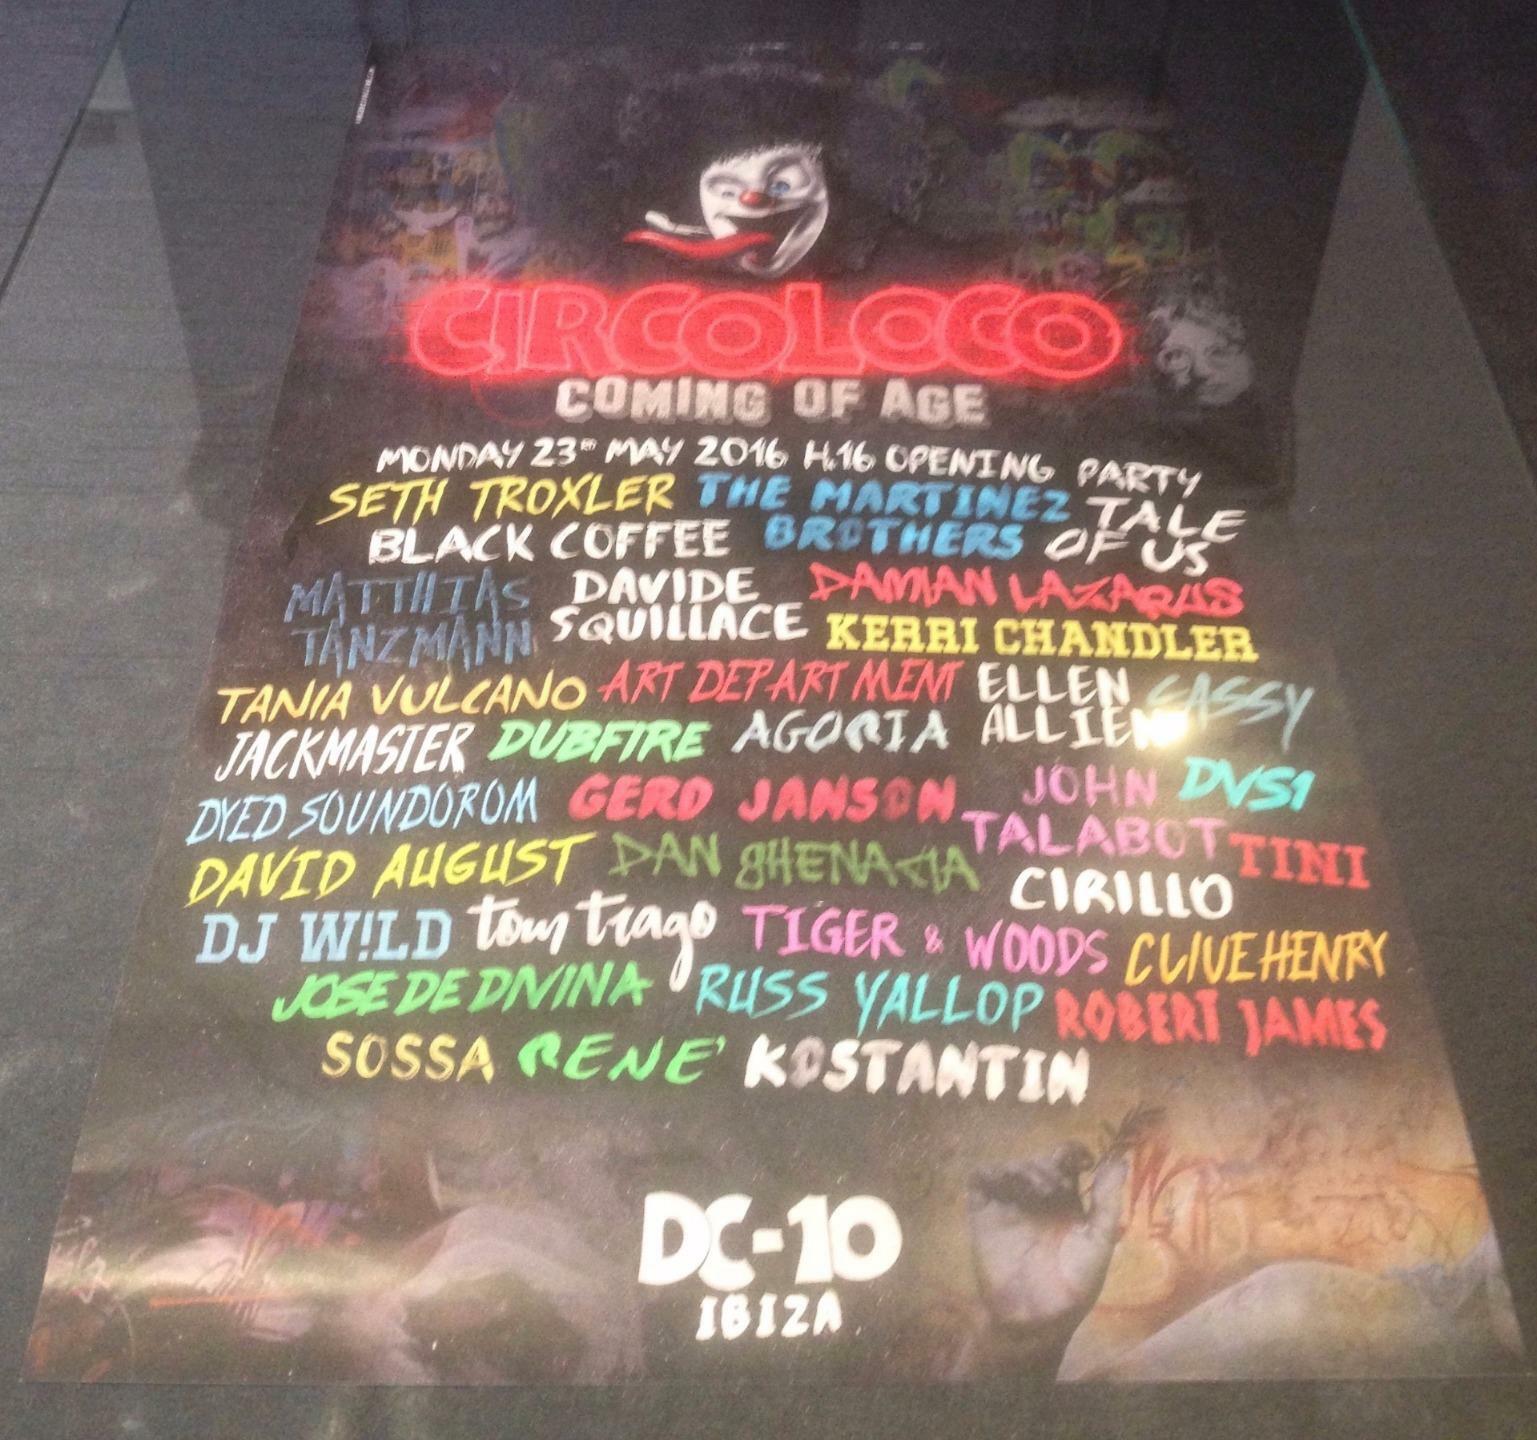 CIRCOLOCO
COMING OF AGE
MONDAY 23RD MAY 2016 H.16 OPENING PARTY
SETH TROXLER THE MARTINEZ BROTHERS TALE OF US
BLACK COFFEE
MATTHIAS TANZMANN DAVIDE SQUILLACE DAMIAN LAZARUS
KERRI CHANDLER
TANIA VULCANO ART DEPARTMENT ELLEN ALLIEN CASSY
JACKMASTER DUBFIRE AGORIA
DYED SOUNDOROM GERD JANSON JOHN TALABOT DVS1
DAVID AUGUST DAN GHENACIA CIRILLO TINI
DJ W!LD tom trago TIGER & WOODS CLIVE HENRY
JOSE DE DIVINA RUSS YALLOP ROBERT JAMES
SOSSA RENE' KOSTANTIN
DC-10
IBIZA